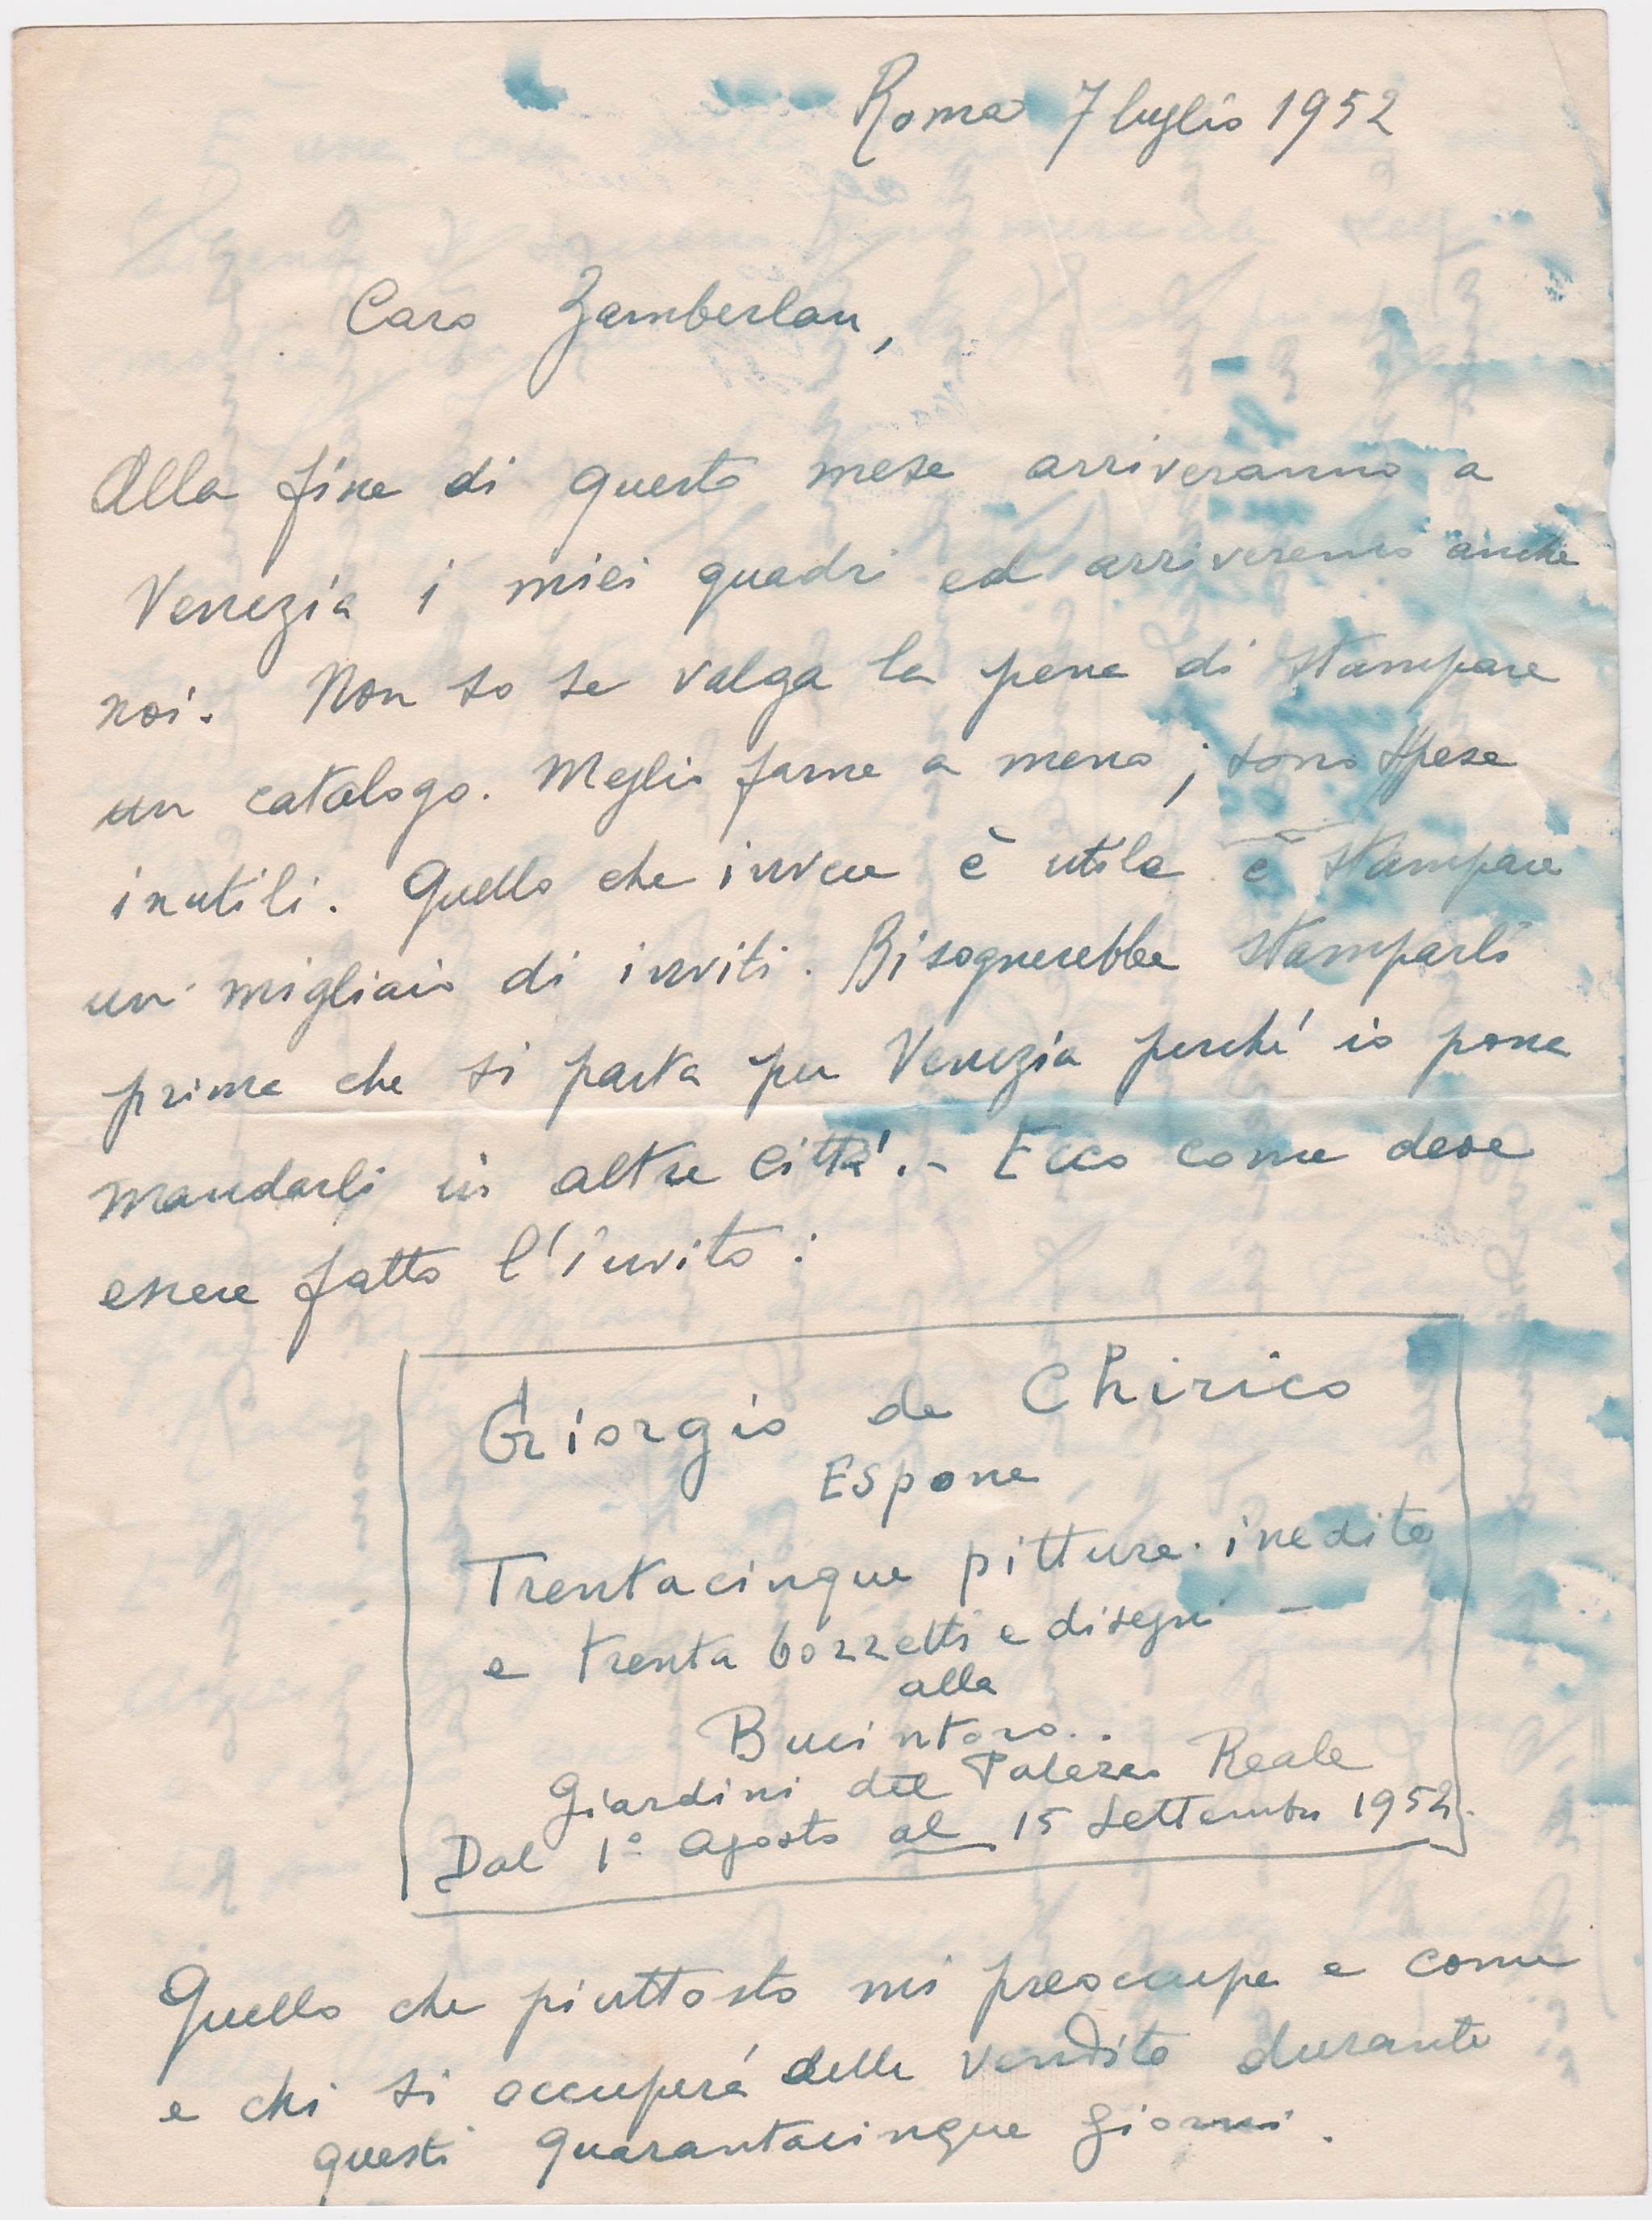 Roma 7 luglio 1952
Caro Zamberlan,
Alla fine di questo mese arriveranno a
Venezia i miei quadri ed arriveremo anche
noi. Non so se valga la pena di stampare
un catalogo. Meglio farne a meno; sono spese
inutili. Quello che invece è utile è stampare
un migliaio di inviti. Bisognerebbe stamparli
prima che si parta per Venezia perché io possa
mandarli in altre cittá.- Ecco come deve
essere fatto l'invito:
Giorgio de Chirico
Espone
Trentacinque pitture inedite
e trenta bozzetti e disegni –
alla
Bucintoro..
Giardini del Palazzo Reale
Dal 1° agosto al 15 settembre 1952.
Quello che piuttosto mi preoccupa e come
e chi si occuperá delle vendite durante
questi quarantacinque giorni.